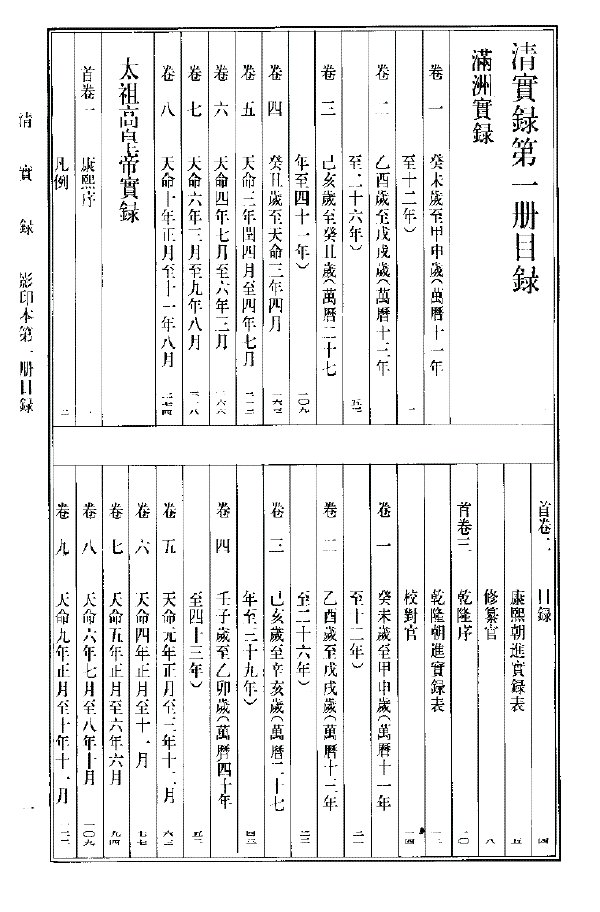 清實録第一册目録
滿洲實録
卷一 癸未歲至甲申歲(萬曆十一年
至十二年)
卷二 乙酉歲至戊戌歲(萬曆十三年
至二十六年)
卷三 己亥歲至癸丑歲(萬曆二十七
年至四十一年) 一〇九
卷四 癸丑歲至天命三年四月
卷五 天命三年閏四月至四年七月
卷六 天命四年七月至六年三月
卷七 天命六年三月至九年八月
卷八 天命十年正月至十一年八月
太祖高皇帝實録
首卷一 康熙序
凡例
首卷二 目録 四
康熙朝進實録表 五
修纂官 八
首卷三 乾隆序 一〇
乾隆朝進實録表
校對官 一四
卷一 癸未歲至甲申歲(萬曆十一年
至十二年)
卷二 乙酉歲至戊戌歲(萬曆十三年
至二十六年)
卷三 己亥歲至辛亥歲(萬曆二十七
年至三十九年)
卷四 壬子歲至乙卯歲(萬曆四十年
至四十三年)
卷五 天命元年正月至三年十二月
卷六 天命四年正月至十一月 七七
卷七 天命五年正月至六年六月 九四
卷八 天命六年七月至八年十月 一〇九
卷九 天命九年正月至十年十一月
清實録 影印本第一册目録
一